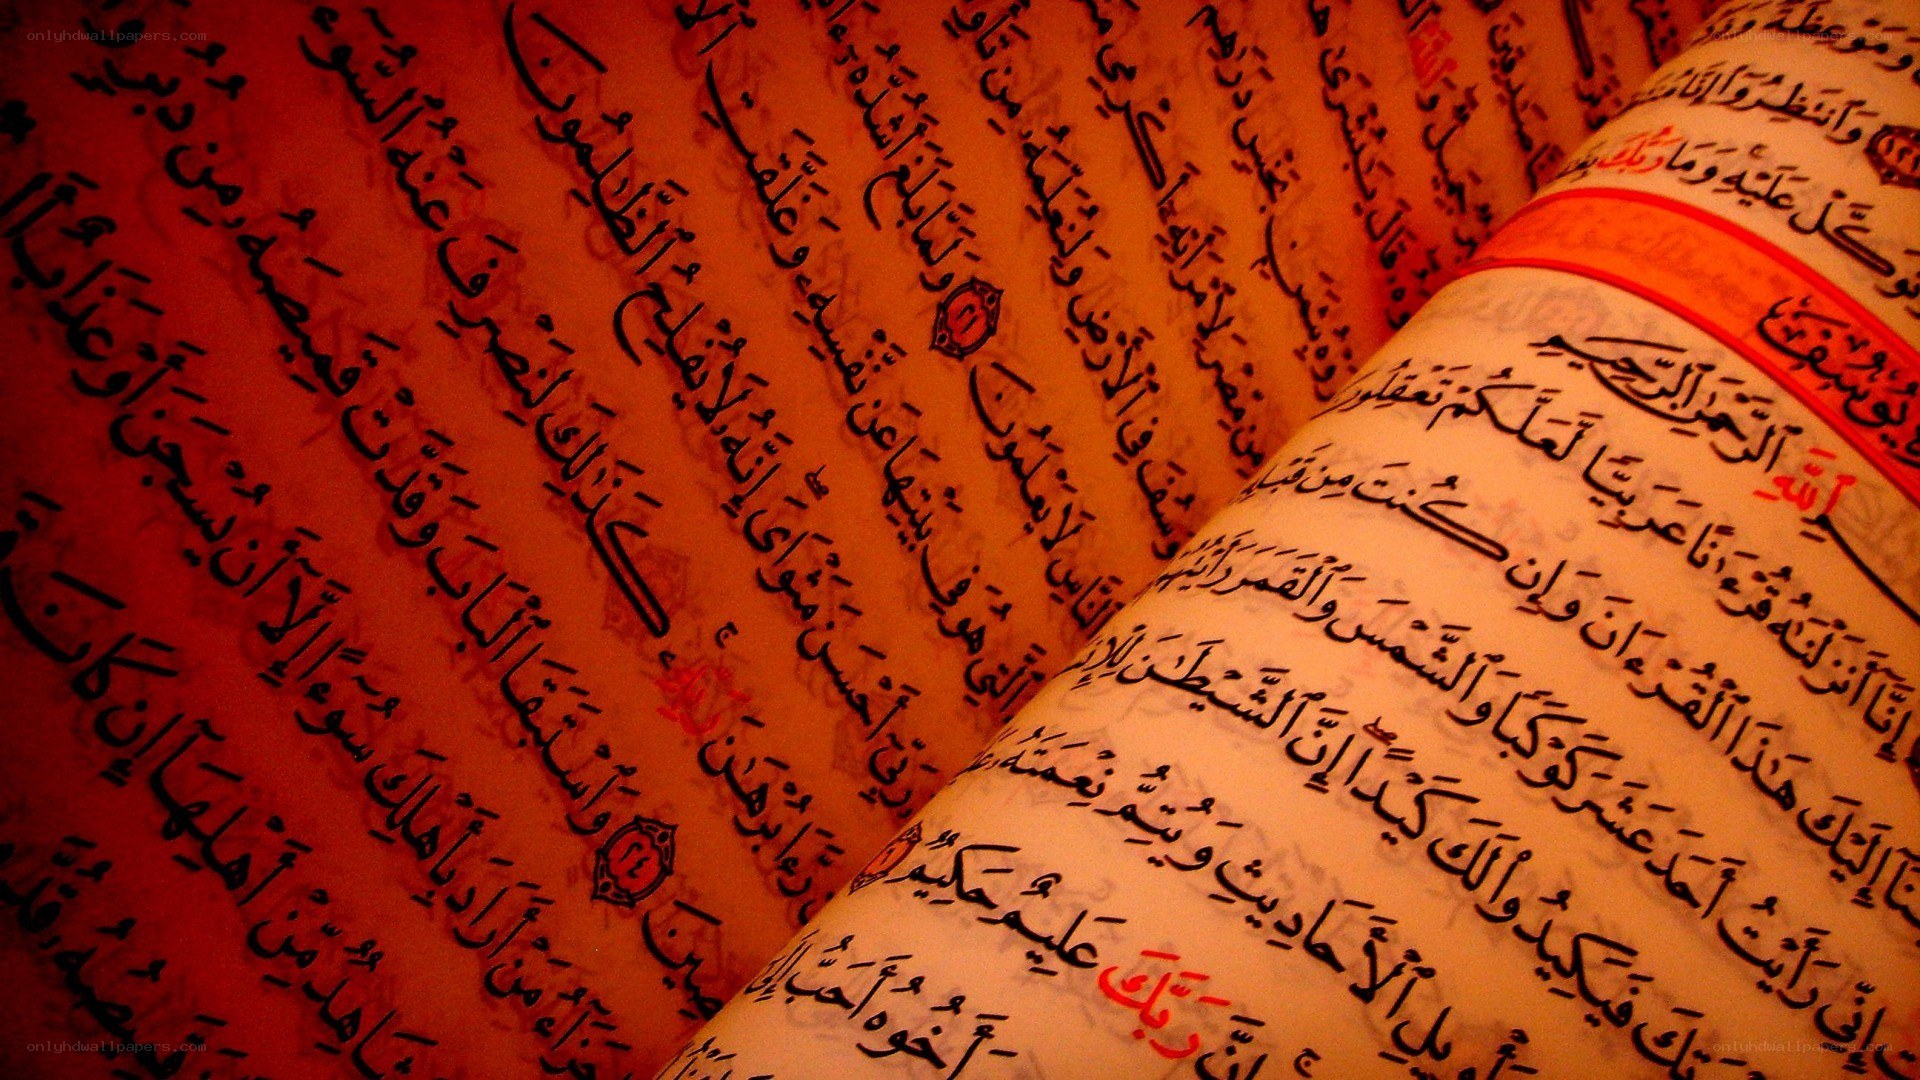 onlyhdwallpapers.com
onlyhdwallpapers.com
وَمَوْعِظَةٌ
وَٱنتَظِرُوٓا۟ إِنَّا
وَتَوَكَّلْ عَلَيْهِ ۚ وَمَا رَبُّكَ
يُوسُفَ
ٱللَّهِ ٱلرَّحْمَٰنِ ٱلرَّحِيمِ
إِنَّآ أَنزَلْنَٰهُ قُرْءَٰنًا عَرَبِيًّا لَّعَلَّكُمْ تَعْقِلُونَ
إِلَيْكَ هَٰذَا ٱلْقُرْءَانَ وَإِن كُنتَ مِن قَبْلِهِ
إِنِّى رَأَيْتُ أَحَدَ عَشَرَ كَوْكَبًا وَٱلشَّمْسَ وَٱلْقَمَرَ رَأَيْتُهُمْ
فَيَكِيدُوا۟ لَكَ كَيْدًا ۖ إِنَّ ٱلشَّيْطَٰنَ لِلْإِنسَٰنِ
تَأْوِيلِ ٱلْأَحَادِيثِ وَيُتِمُّ نِعْمَتَهُۥ
إِنَّ رَبَّكَ عَلِيمٌ حَكِيمٌ ٦
أَخُوهُ أَحَبُّ إِلَىٰ
قَالَ يَٰبُشْرَىٰ
وَشَرَوْهُ بِثَمَنٍۭ بَخْسٍ دَرَٰهِمَ
مِن مِّصْرَ لِٱمْرَأَتِهِۦٓ أَكْرِمِى
يُوسُفَ فِى ٱلْأَرْضِ وَلِنُعَلِّمَهُۥ مِن تَأْوِيلِ
ٱلنَّاسِ لَا يَعْلَمُونَ ٢١ وَلَمَّا بَلَغَ أَشُدَّهُۥٓ
ٱلَّتِى هُوَ فِى بَيْتِهَا عَن نَّفْسِهِۦ وَغَلَّقَتِ
رَبِّىٓ أَحْسَنَ مَثْوَاىَ ۖ إِنَّهُۥ لَا يُفْلِحُ ٱلظَّٰلِمُونَ
رَّءَا بُرْهَٰنَ رَبِّهِۦ ۚ كَذَٰلِكَ لِنَصْرِفَ عَنْهُ ٱلسُّوٓءَ
ٱلْمُخْلَصِينَ ٢٤ وَٱسْتَبَقَا ٱلْبَابَ وَقَدَّتْ قَمِيصَهُۥ مِن دُبُرٍ
جَزَآءُ مَنْ أَرَادَ بِأَهْلِكَ سُوٓءًا إِلَّآ أَن يُسْجَنَ أَوْ عَذَابٌ
شَاهِدٌ مِّنْ أَهْلِهَآ إِن كَانَ
onlyhdwallpapers.com
onlyhdwallpapers.com